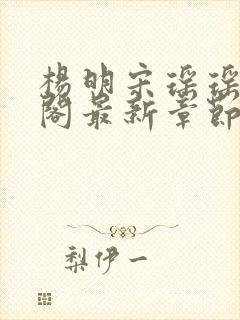 楊明宋瑤瑤
閣最新章節
梨伊一